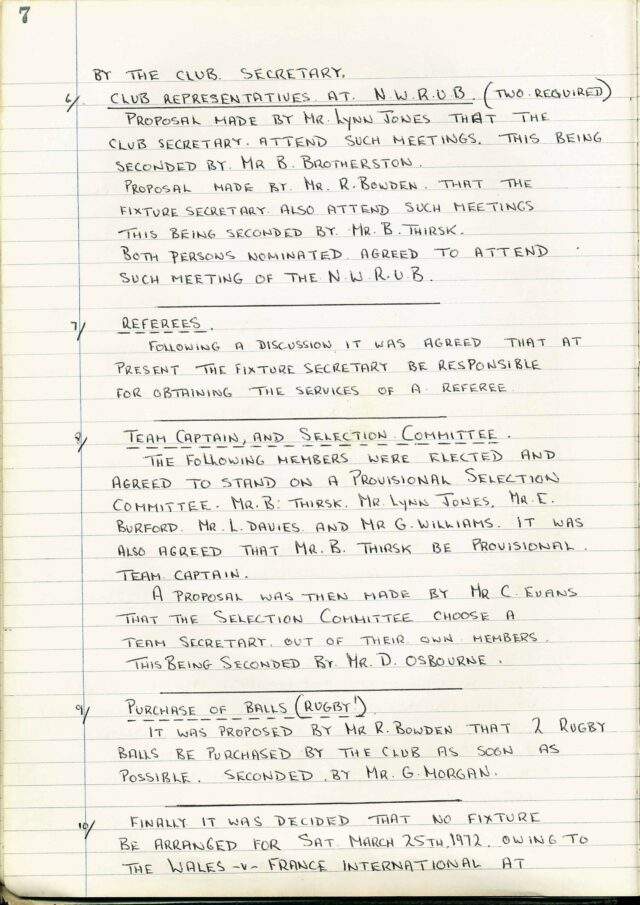 7
BY THE CLUB. SECRETARY.
6/ CLUB REPRESENTATIVES. AT. N.W.R.U.B. (TWO. REQUIRED)
PROPOSAL MADE BY MR. LYNN JONES THAT THE
CLUB SECRETARY. ATTEND SUCH MEETINGS. THIS BEING
SECONDED BY. MR B. BROTHERSTON.
PROPOSAL MADE BY. MR. R. BOWDEN. THAT THE
FIXTURE SECRETARY. ALSO ATTEND SUCH MEETINGS
THIS BEING SECONDED BY. MR. B. THIRSK.
BOTH PERSONS NOMINATED. AGREED TO ATTEND
SUCH MEETING OF THE N.W.R.U.B.
7/ REFEREES.
FOLLOWING A DISCUSSION IT WAS AGREED THAT AT
PRESENT THE FIXTURE SECRETARY BE RESPONSIBLE
FOR OBTAINING THE SERVICES OF A REFEREE
8/ TEAM CAPTAIN, AND SELECTION COMMITTEE.
THE FOLLOWING MEMBERS WERE ELECTED AND
AGREED TO STAND ON A PROVISIONAL SELECTION
COMMITTEE. MR. B. THIRSK. MR. LYNN JONES. MR. E.
BURFORD. MR. L. DAVIES. AND MR G. WILLIAMS. IT WAS
ALSO AGREED THAT MR. B. THIRSK BE PROVISIONAL.
TEAM CAPTAIN.
A PROPOSAL WAS THEN MADE BY MR C. EVANS
THAT THE SELECTION COMMITTEE CHOOSE A
TEAM SECRETARY. OUT OF THEIR OWN MEMBERS.
THIS BEING SECONDED BY. MR. D. OSBOURNE.
9/ PURCHASE OF BALLS (RUGBY!)
IT WAS PROPOSED BY MR R. BOWDEN THAT 2 RUGBY
BALLS BE PURCHASED BY THE CLUB AS SOON AS
POSSIBLE. SECONDED. BY MR. G. MORGAN.
10/ FINALLY IT WAS DECIDED THAT NO FIXTURE
BE ARRANGED FOR SAT. MARCH 25TH. 1972. OWING TO
THE WALES -V- FRANCE INTERNATIONAL AT